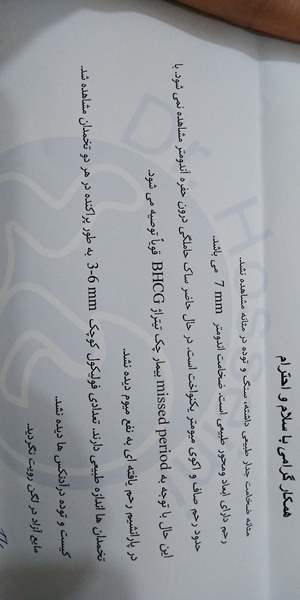 همکار گرامی با سلام و احترام
مثانه ضخامت جدار طبیعی داشته، سنگ و توده در مثانه مشاهده نشد.
رحم دارای ابعاد ومحور طبیعی است. ضخامت اندومتر 7 mm می باشد.
حدود رحم صاف و اکوی میومتر یکنواخت است. در حال حاضر ساک حاملگی درون حفره اندومتر مشاهده نمی شود. با
این حال با توجه به missed period بیمار چک تیتراژ BHCG قویاً توصیه می شود.
در پارانشیم رحم یافته ای به نفع میوم دیده نشد.
تخمدان ها اندازه طبیعی دارند. تعدادی فولیکول کوچک 3-6 mm به طور پراکنده در هر دو تخمدان مشاهده شد.
کیست و توده درادنکس ها دیده نشد.
مایع آزاد در لگن رویت نگردید.
Dr. Hos